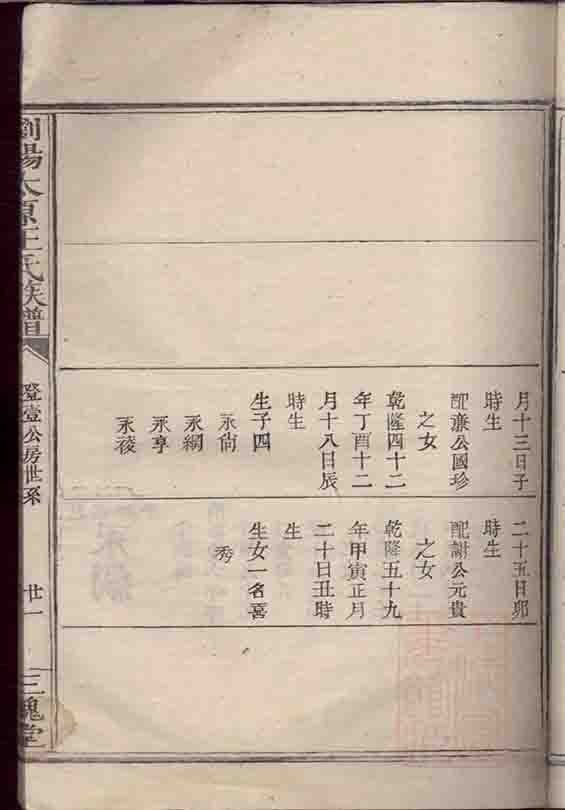 月十三日子
時生
配兼公國珍
之女
乾隆四十二
年丁酉十二
月十八日辰
時生
生子四
永尙
永綱
永享
永稜
二十五日卯
時生
配謝公元貴
之女
乾隆五十九
年甲寅正月
二十日丑時
生
生女一名喜
秀
瀏陽太原王氏族譜
登壹公房世系
廿一
三槐堂